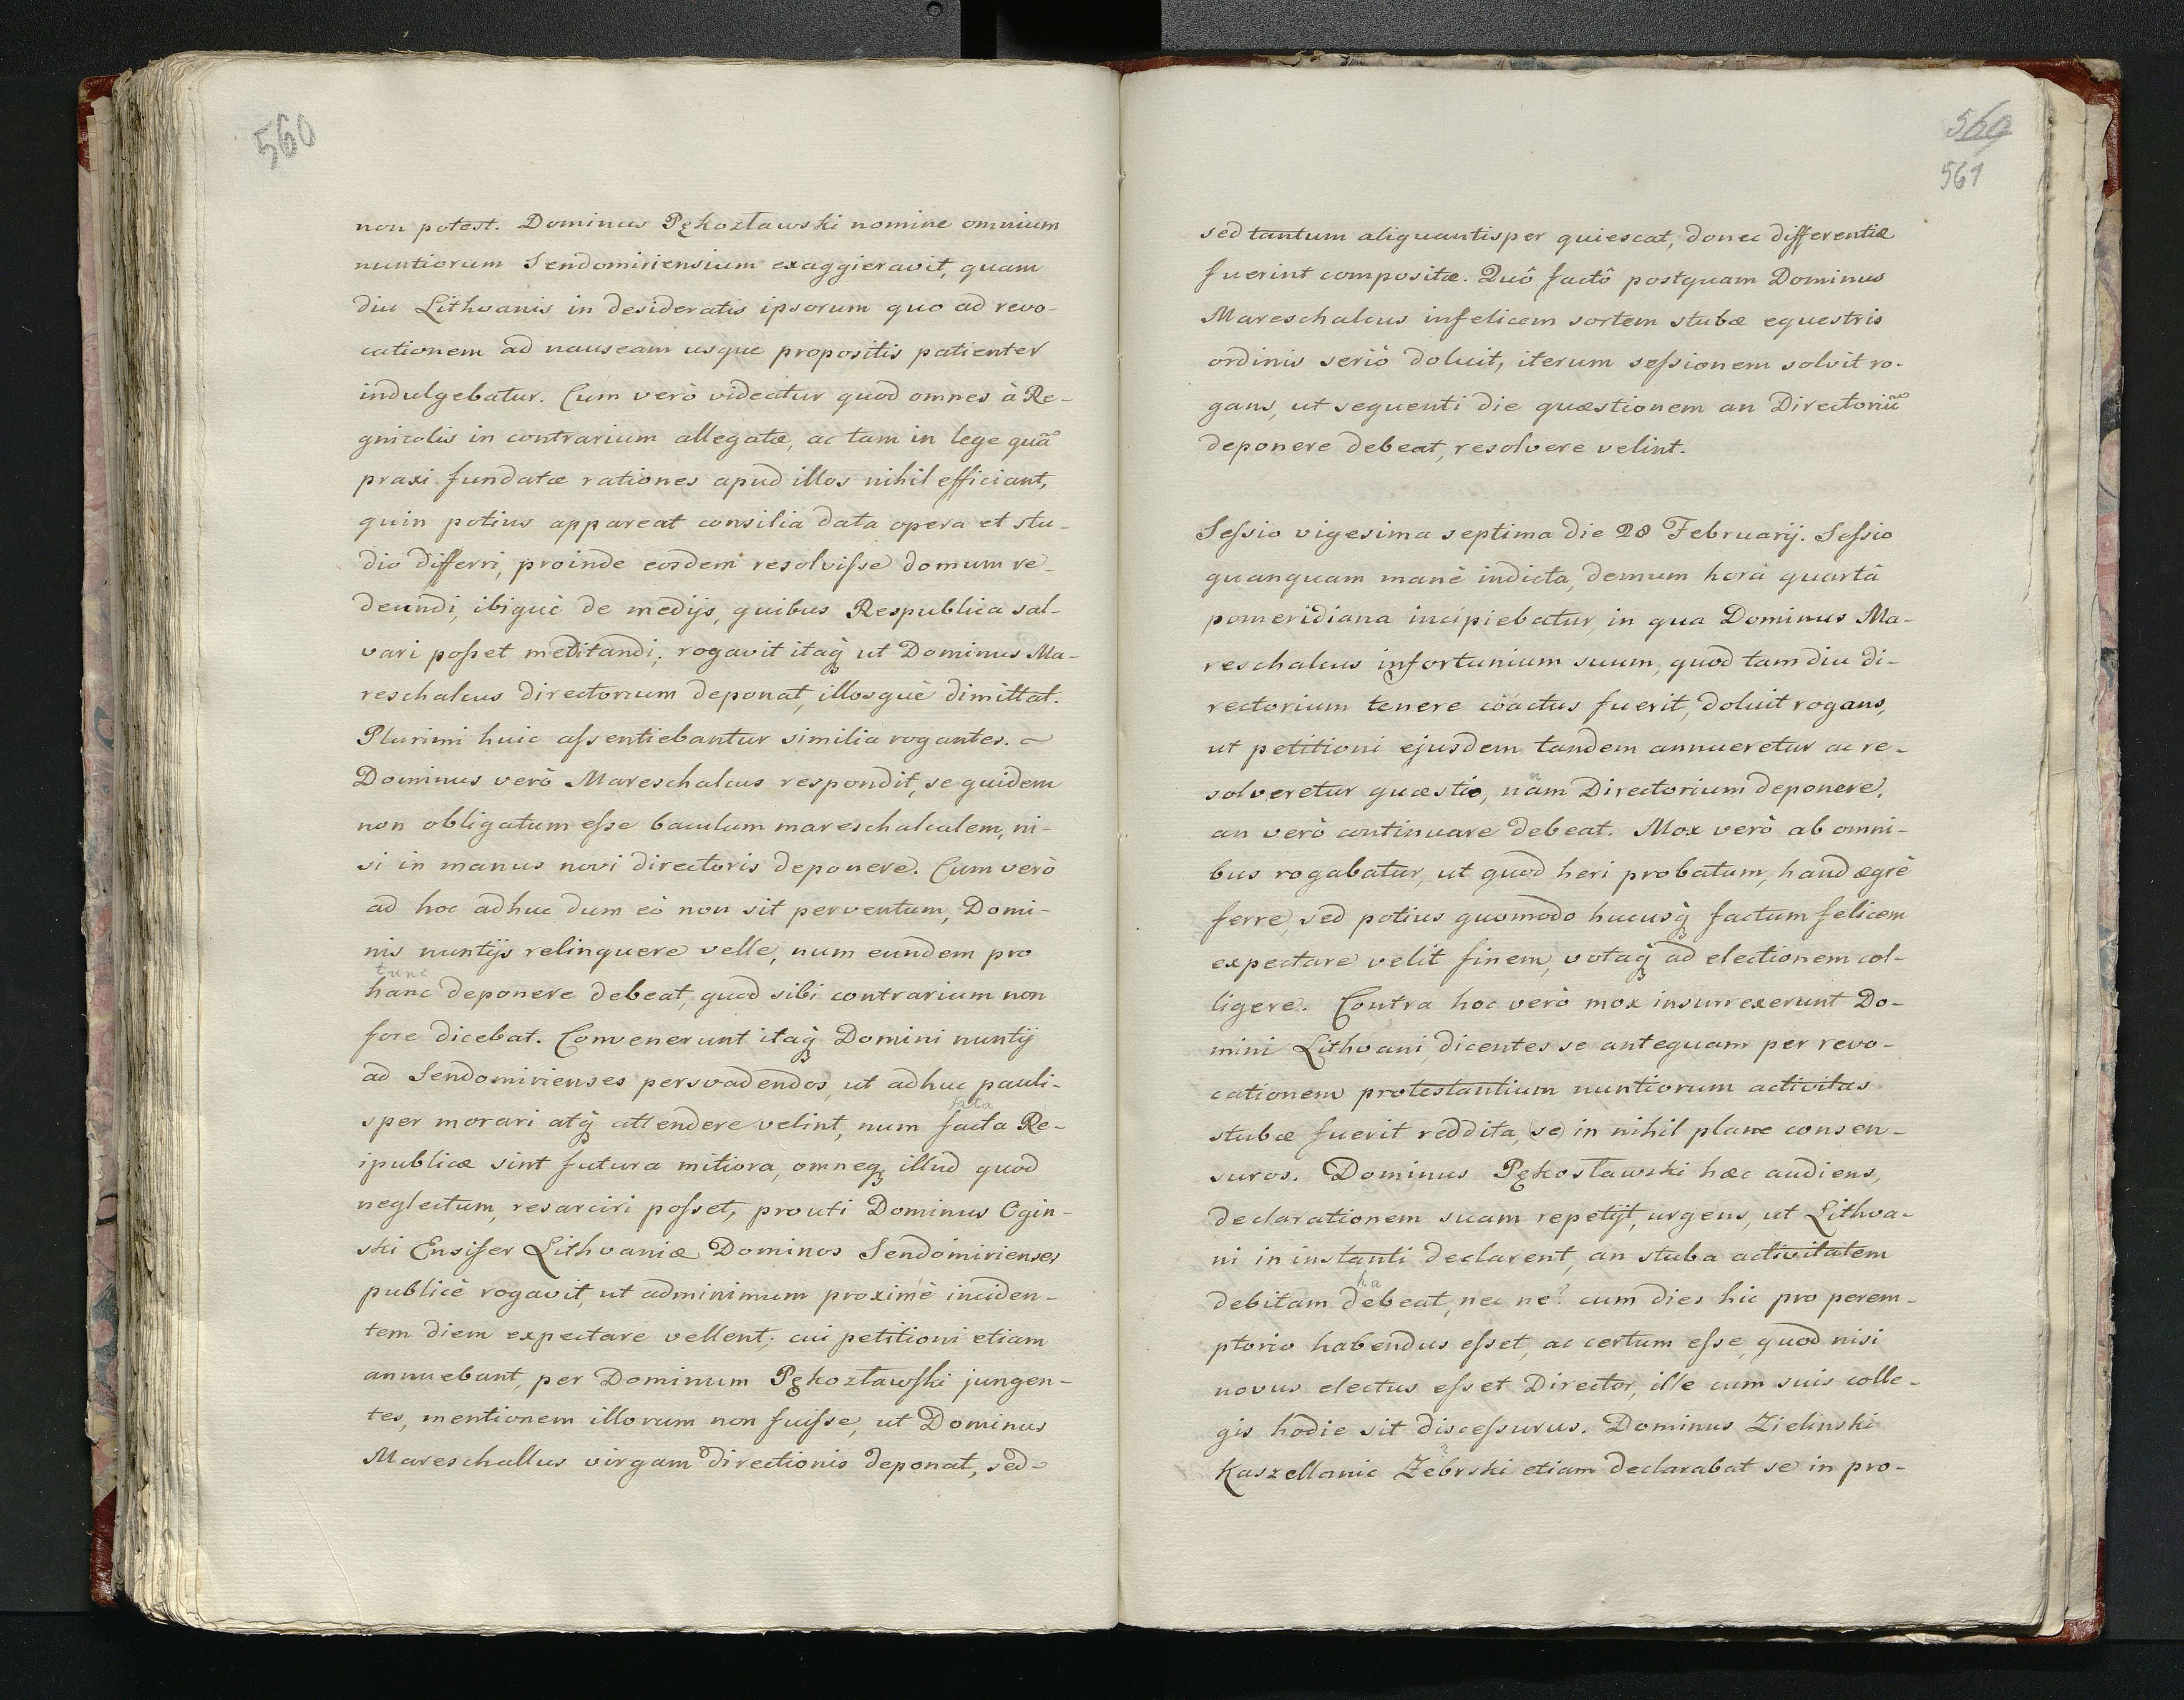 560
non potest. Dominus Pękozławski nomine omnium
nuntiorum Sendomiriensium exaggieravit, quam
diu Lithvanis in desideratis ipsorum quo ad revo-
cationem ad nauseam usque propositis patienter
indulgebatur. Cum verò videatur quod omnes à Re-
gnicolis in contrarium allegatæ, ac tam in lege quã
praxi fundatæ rationes apud illos nihil efficiant,
quin potius appareat consilia data opera et stu-
dió differri, proinde eosdem resolviſse domum re-
deundi, ibiquè de medijs, quibus Respublica sal-
vari poſset meditandi; rogavit itaq̃ ut Dominus Ma-
reschalcus directorium deponat, illosquè dimittat.
Plurimi huic aſsentiebantur similia rogantes. ~
Dominus verò Mareschalcus respondit, se quidem
non obligatum eſse baculum mareschalcalem, ni-
si in manus novi directoris deponere. Cum verò
ad hoc adhuc dum eò non sit perventum, Domi-
nis nuntijs relinquere velle, num eundem pro
tunc
hanc deponere debeat, quod sibi contrarium non
fore dicebat. Convenerunt itaq̃ Domini nuntij
ad Sendomirienses persvadendos, ut adhuc pauli-
fata
sper morari atq̃ attendere velint, num facta Re-
ipublicæ sint futura mitiora, omneq̃ illud quod
neglectum, resarciri poſset, prouti Dominus Ogin-
ski Ensifer Lithvaniæ Dominos Sendomirienses
publicè rogavit, ut adminimum proximè inciden-
tem diem expectare vellent; cui petitioni etiam
annuebant, per Dominum Pękozławſki jungen-
tes, mentionem illorum non fuiſse, ut Dominus
Mareschallus virgam directionis deponat, sed
560
561
sed tantum aliquantisper quiescat, donec differentiæ
fuerint compositæ. Quô factô postquam Dominus
Mareschalcus infelicem sortem stubæ equestris
ordinis seriò doluit, iterum seſsionem solvit ro-
gans, ut sequenti die quæstionem an Directoriũ
deponere debeat, resolvere velint.
Seſsio vigesima septima die 28 Februarij. Seſsio
quanquam manè indicta, demum horâ quartâ
pomeridiana incipiebatur, in qua Dominus Ma-
reschalcus infortunium suum, quod tam diu di-
rectorium tenere cöactus fuerit, doluit rogans,
ut petitioni ejusdem tandem annueretur ac re-
solveretur quæstio, nam Directorium deponere,
an verò continuare debeat. Mox verò ab omni-
bus rogabatur, ut quod heri probatum, haud ægrè
ferre, sed potius quomodo hucusq̃ factum felicem
expectare velit finem, votaq̃ ad electionem col-
ligere. Contra hoc verò mox insurrexerunt Do-
mini Lithvani dicentes se antequam per revo-
cationem protestantium nuntiorum activitas
stubæ fuerit reddita, se in nihil plane consen-
suros. Dominus Pękosławski hæc audiens,
declarationem suam repetijt, urgens, ut Lithva-
ni in instanti declarent, an stuba activitatem
ha
debitam debeat, nec ne? cum dies hic pro perem-
ptorio habendus eſset, ac certum eſse, quod nisi
novus electus eſset Director, ille cum suis colle-
gis hodie sit disceſsurus. Dominus Zielinski
Kaszellanic Zebrski etiam declarabat se in pro-